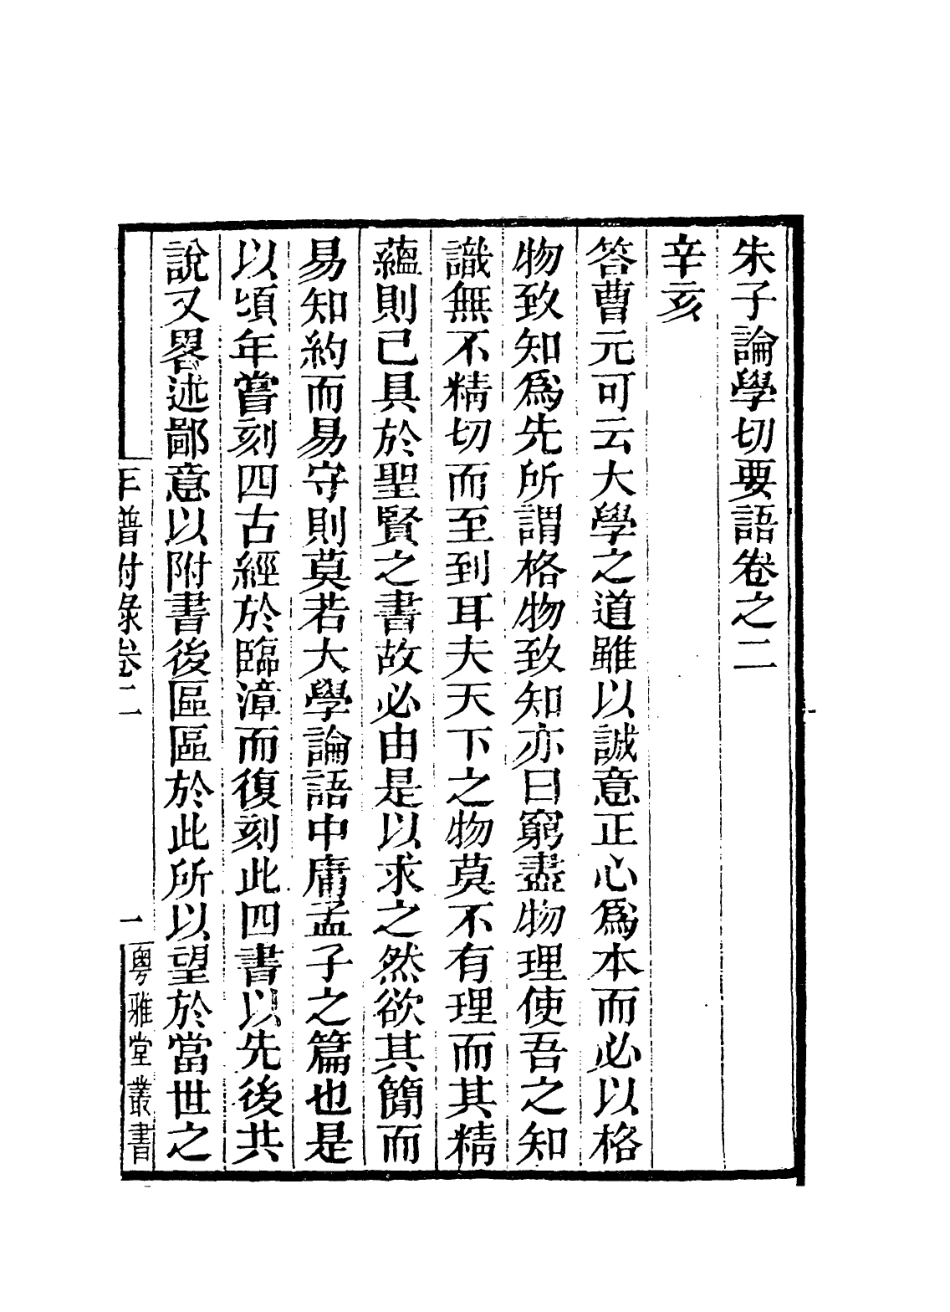 朱子論學切要語卷之二
辛亥
答曹元可云大學之道雖以誠意正心爲本而必以格
物致知爲先所謂格物致知亦曰窮盡物理使吾之知
識無不精切而至到耳夫天下之物莫不有理而其精
蘊則已具於聖賢之書故必由是以求之然欲其簡而
易知約而易守則莫若大學論語中庸孟子之篇也是
以頃年嘗刻四古經於臨漳而復刻此四書以先後共
說又畧述鄙意以附書後區區於此所以望於當世之
王譜附錄卷二
一
粵雅堂叢書